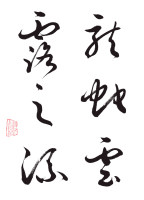 龍蛇雲
露之流